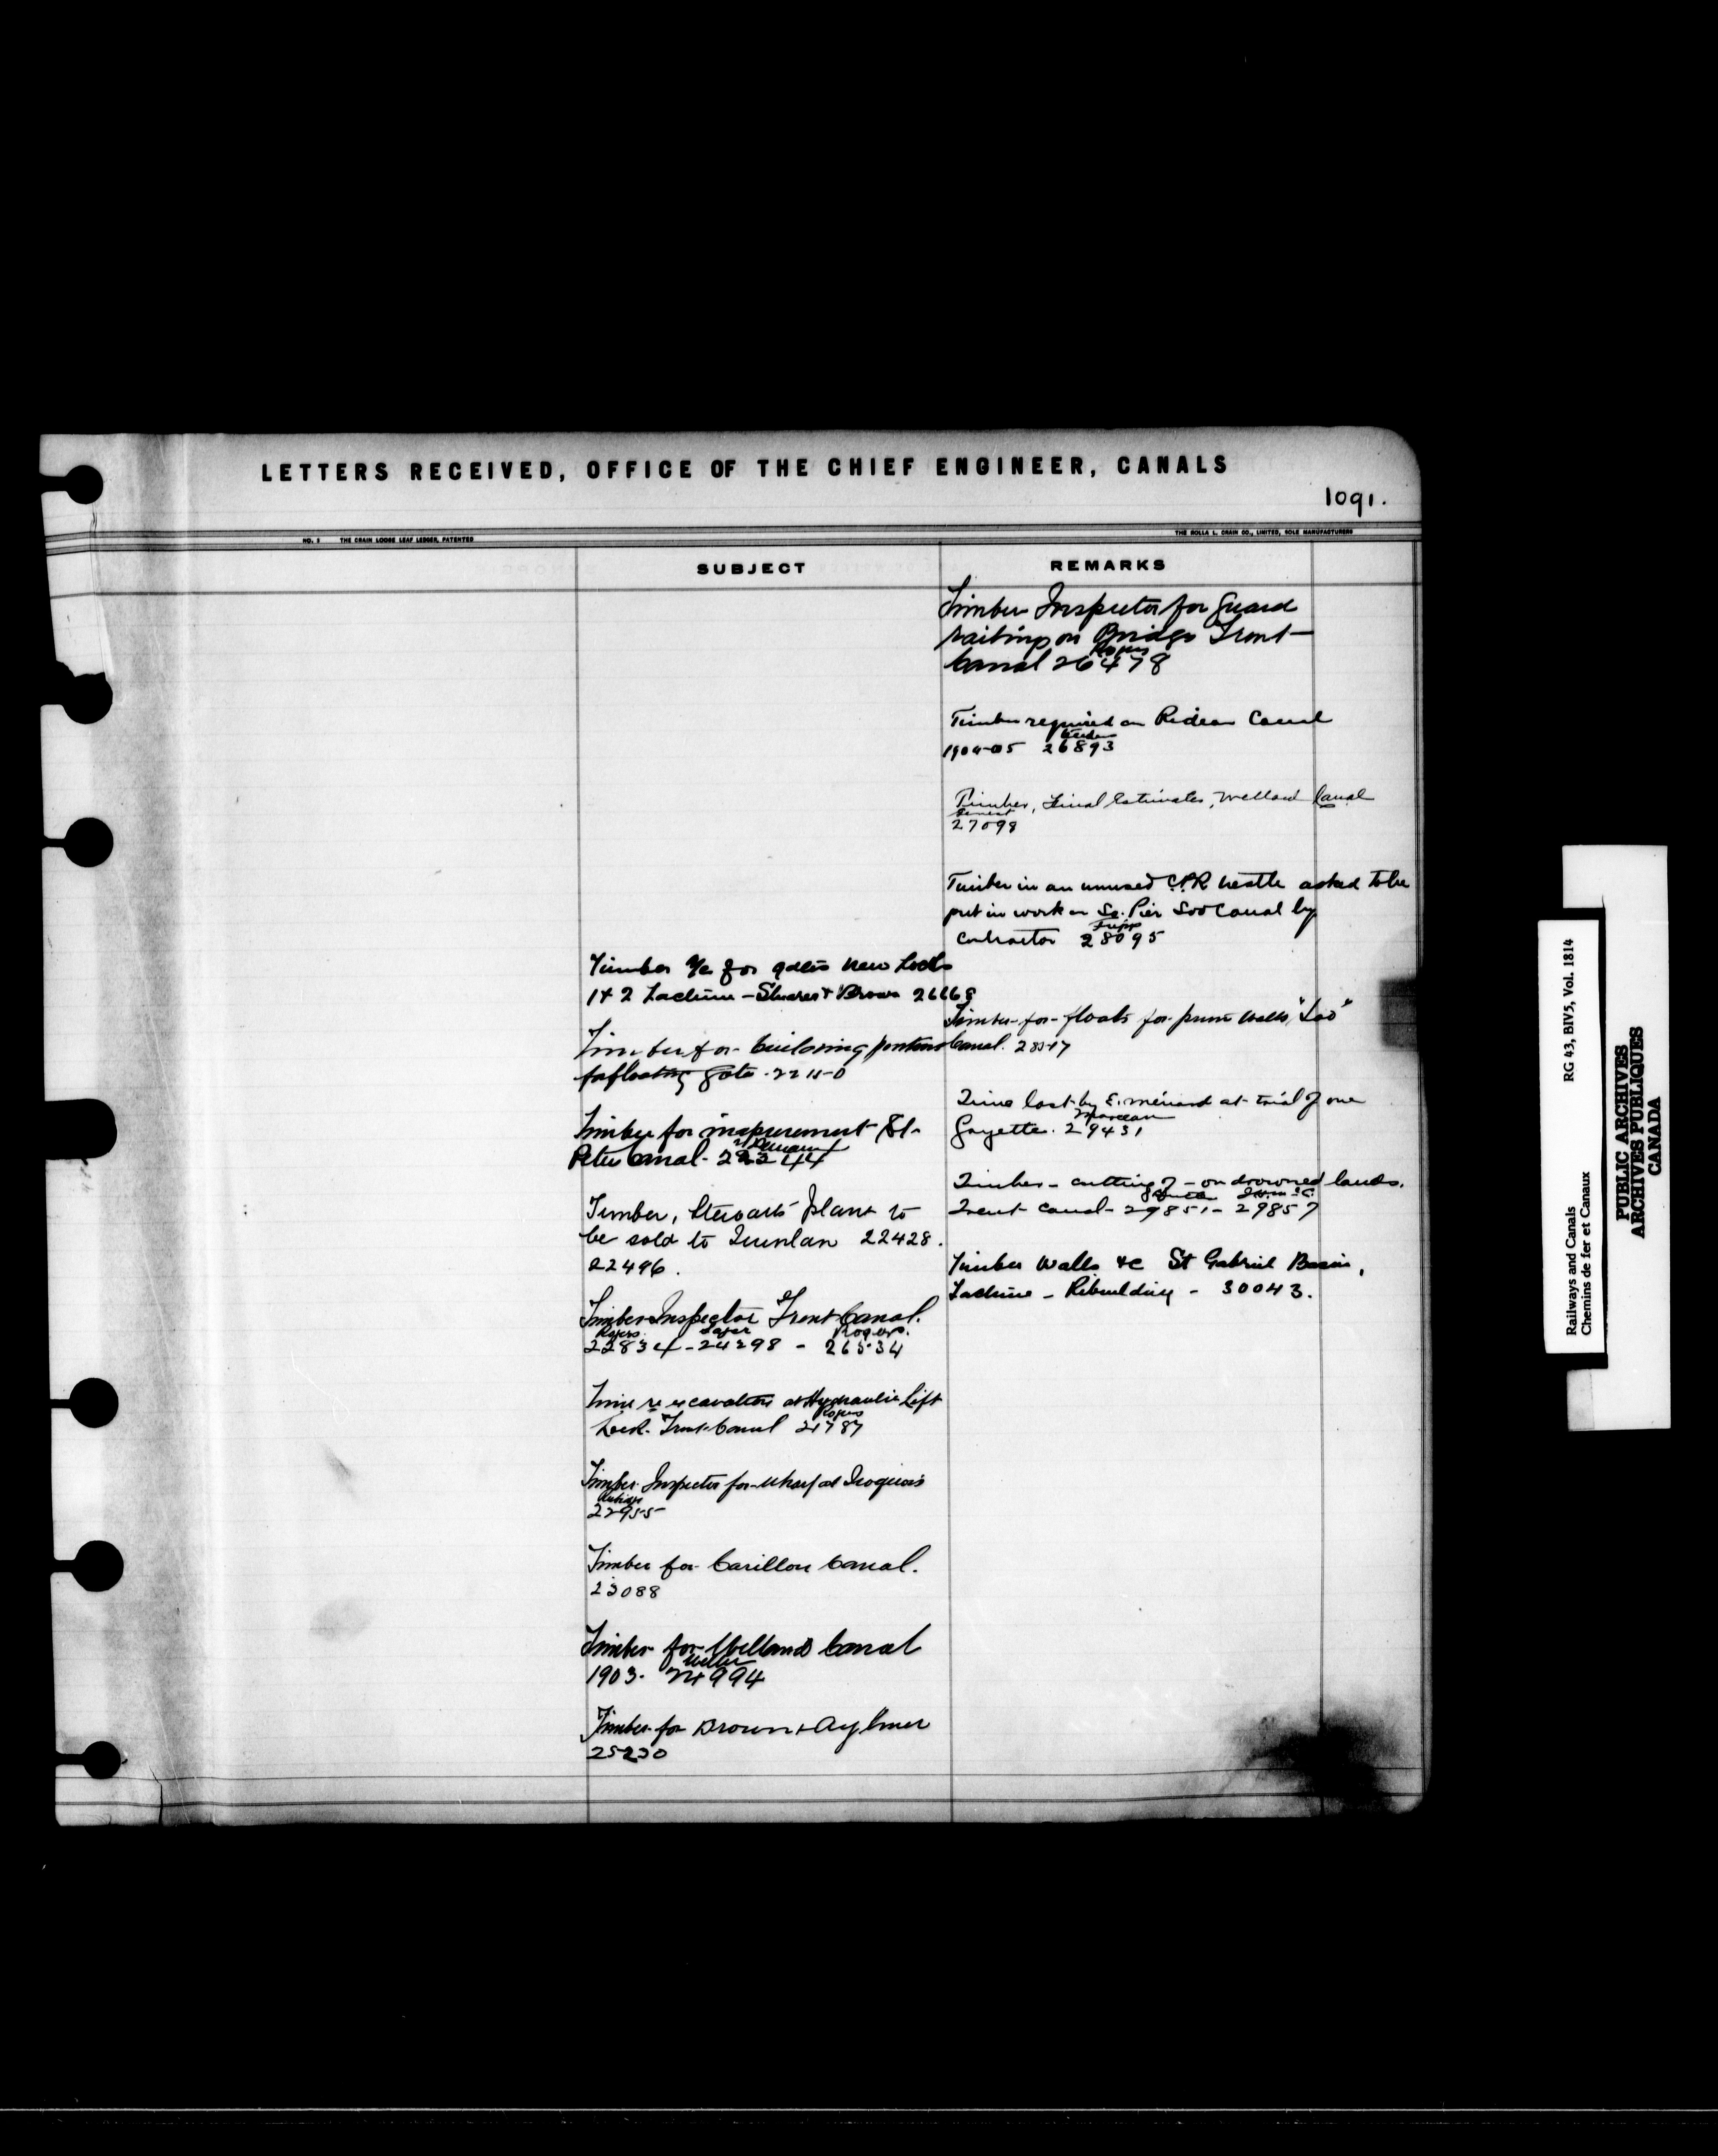 LETTERS RECEIVED, OFFICE OF THE CHIEF ENGINEER, CANALS
1091.
NO. THE CRAIN LOOSE LEAF LEDGER, PATENTED
THE ROLLA L. CRAIN CO., LIMITED, SOLE MANUFACTURERS
SUBJECT
Timber &c for gates new Locks
1 & 2 Lachine - & Brown
Timber for building pontoon
for floating gate
Timber for St.
Peters Canal -
Timber, Stewarts Plant to
be sold to Quinlan 22428.
22496.
Timber Inspector Trent Canal.
Rogers Rogers.
22834 - 24298 - 26534
Time re excavation at Hydraulic Lift
Rogers
Lock. Trent Canal
Timber Inspector for wharf at Iroquois
22955
Timber for Carillon Canal.
23088
Timber for Welland Canal
Weller
1903. 24994
Timber for Brown & Aylmer
25230
REMARKS
Timber Inspector for guard
railing on Bridge Trent
Rogers
Canal 26478
Timber required on Rideau Canal
1904-05 26893
Timber, Final Estimates, Welland Canal
27098
Timber in an unused C.P.R trestle asked to be
put in work on So. Pier Soo Canal by
contractor 28095
Timber for floats for prism walls "Soo"
Canal.
Time lost by E. Menard at trial of one
Marceau
Goyette. 29431
Timber - cutting of - on drowned lands.
Trent Canal - 29851 - 29857
Timber Walls &c St Gabriel Basin,
Lachine - Rebuilding - 30043.
Railways and Canals RG 43, BIV5, Vol. 1814
Chemins de fer et Canaux
PUBLIC ARCHIVES
ARCHIVES PUBLIQUES
CANADA